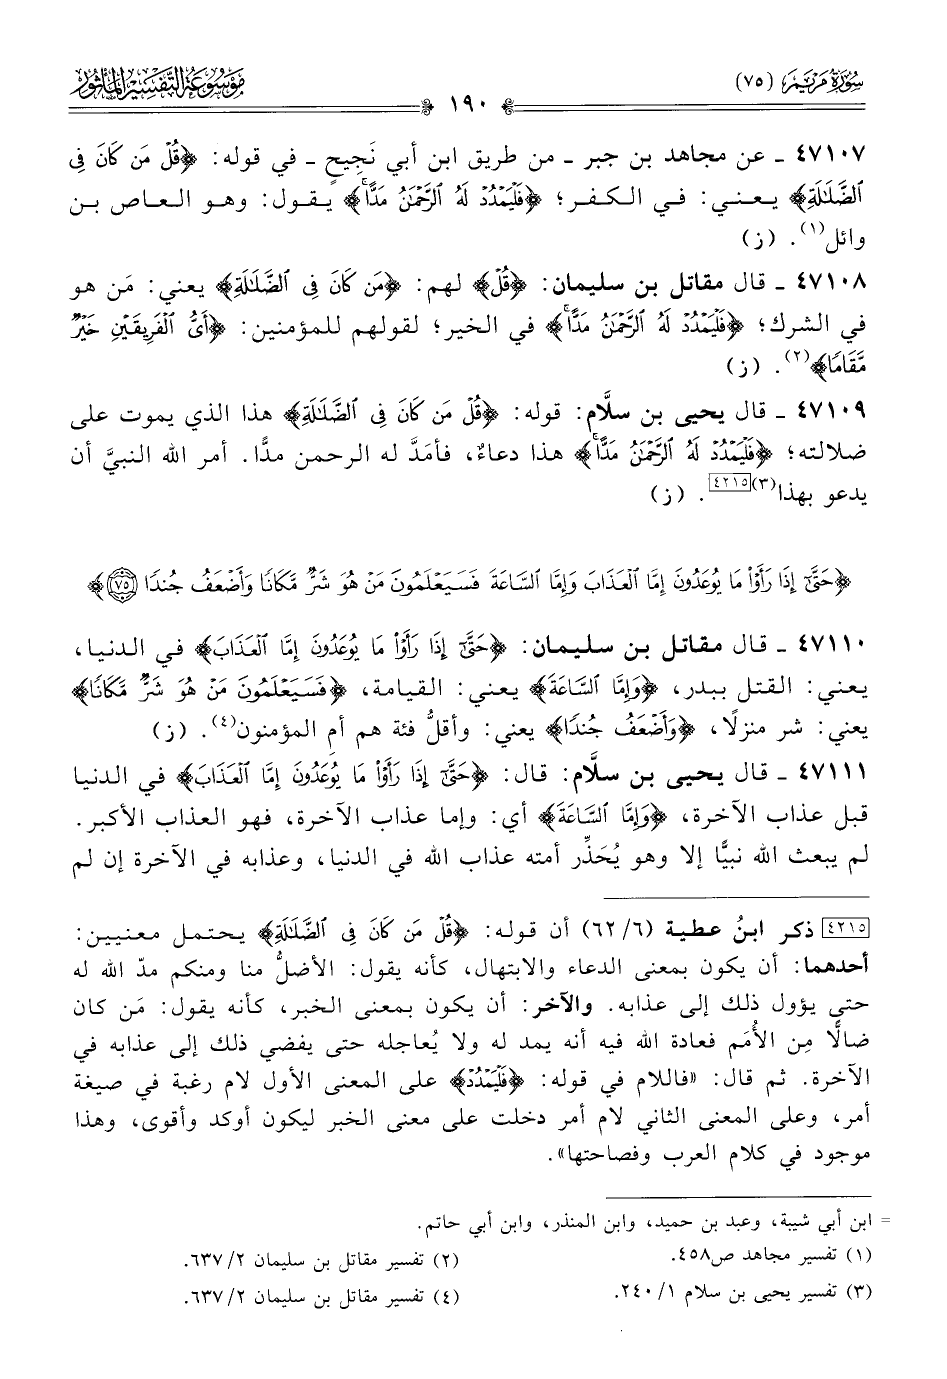 سورة مريم (٧٥)
١٩٠
موسوعة التفسير المأثور
٤٧١٠٧ ـ عن مجاهد بن جبر ـ من طريق ابن أبي نَجِيحٍ ـ في قوله: ﴿قُلْ مَن كَانَ فِى
ٱلضَّلَٰلَةِ﴾ يعني: في الكفر؛ ﴿فَلْيَمْدُدْ لَهُ ٱلرَّحْمَٰنُ مَدًّا﴾ يقول: وهو العاص بن
وائل(١). (ز)
٤٧١٠٨ ـ قال مقاتل بن سليمان: ﴿قُلْ﴾ لهم: ﴿مَن كَانَ فِى ٱلضَّلَٰلَةِ﴾ يعني: مَن هو
في الشرك؛ ﴿فَلْيَمْدُدْ لَهُ ٱلرَّحْمَٰنُ مَدًّا﴾ في الخير؛ لقولهم للمؤمنين: ﴿أَىُّ ٱلْفَرِيقَيْنِ خَيْرٌ
مَّقَامًا﴾(٢). (ز)
٤٧١٠٩ ـ قال يحيى بن سلَّام: قوله: ﴿قُلْ مَن كَانَ فِى ٱلضَّلَٰلَةِ﴾ هذا الذي يموت على
ضلالته؛ ﴿فَلْيَمْدُدْ لَهُ ٱلرَّحْمَٰنُ مَدًّا﴾ هذا دعاءٌ، فأمَدَّ له الرحمن مدًّا. أمر الله النبيَّ أن
يدعو بهذا(٣)[٤٢١٥]. (ز)
﴿حَتَّىٰٓ إِذَا رَأَوْا۟ مَا يُوعَدُونَ إِمَّا ٱلْعَذَابَ وَإِمَّا ٱلسَّاعَةَ فَسَيَعْلَمُونَ مَنْ هُوَ شَرٌّ مَّكَانًا وَأَضْعَفُ جُندًا ٧٥﴾
٤٧١١٠ ـ قال مقاتل بن سليمان: ﴿حَتَّىٰٓ إِذَا رَأَوْا۟ مَا يُوعَدُونَ إِمَّا ٱلْعَذَابَ﴾ في الدنيا،
يعني: القتل ببدر، ﴿وَإِمَّا ٱلسَّاعَةَ﴾ يعني: القيامة، ﴿فَسَيَعْلَمُونَ مَنْ هُوَ شَرٌّ مَّكَانًا﴾
يعني: شر منزلًا، ﴿وَأَضْعَفُ جُندًا﴾ يعني: وأقلُّ فئة هم أمِ المؤمنون(٤). (ز)
٤٧١١١ ـ قال يحيى بن سلَّام: قال: ﴿حَتَّىٰٓ إِذَا رَأَوْا۟ مَا يُوعَدُونَ إِمَّا ٱلْعَذَابَ﴾ في الدنيا
قبل عذاب الآخرة، ﴿وَإِمَّا ٱلسَّاعَةَ﴾ أي: وإما عذاب الآخرة، فهو العذاب الأكبر.
لم يبعث الله نبيًّا إلا وهو يُحَذِّر أمته عذاب الله في الدنيا، وعذابه في الآخرة إن لم
[٤٢١٥] ذكر ابنُ عطية (٦/ ٦٢) أن قوله: ﴿قُلْ مَن كَانَ فِى ٱلضَّلَٰلَةِ﴾ يحتمل معنيين:
أحدهما: أن يكون بمعنى الدعاء والابتهال، كأنه يقول: الأضلُّ منا ومنكم مدّ الله له
حتى يؤول ذلك إلى عذابه. والآخر: أن يكون بمعنى الخبر، كأنه يقول: مَن كان
ضالًّا مِن الأُمَم فعادة الله فيه أنه يمد له ولا يُعاجله حتى يفضي ذلك إلى عذابه في
الآخرة. ثم قال: «فاللام في قوله: ﴿فَلْيَمْدُدْ﴾ على المعنى الأول لام رغبة في صيغة
أمر، وعلى المعنى الثاني لام أمر دخلت على معنى الخبر ليكون أوكد وأقوى، وهذا
موجود في كلام العرب وفصاحتها».
= ابن أبي شيبة، وعبد بن حميد، وابن المنذر، وابن أبي حاتم.
(١) تفسير مجاهد ص٤٥٨. (٢) تفسير مقاتل بن سليمان ٢/ ٦٣٧.
(٣) تفسير يحيى بن سلام ١/ ٢٤٠. (٤) تفسير مقاتل بن سليمان ٢/ ٦٣٧.